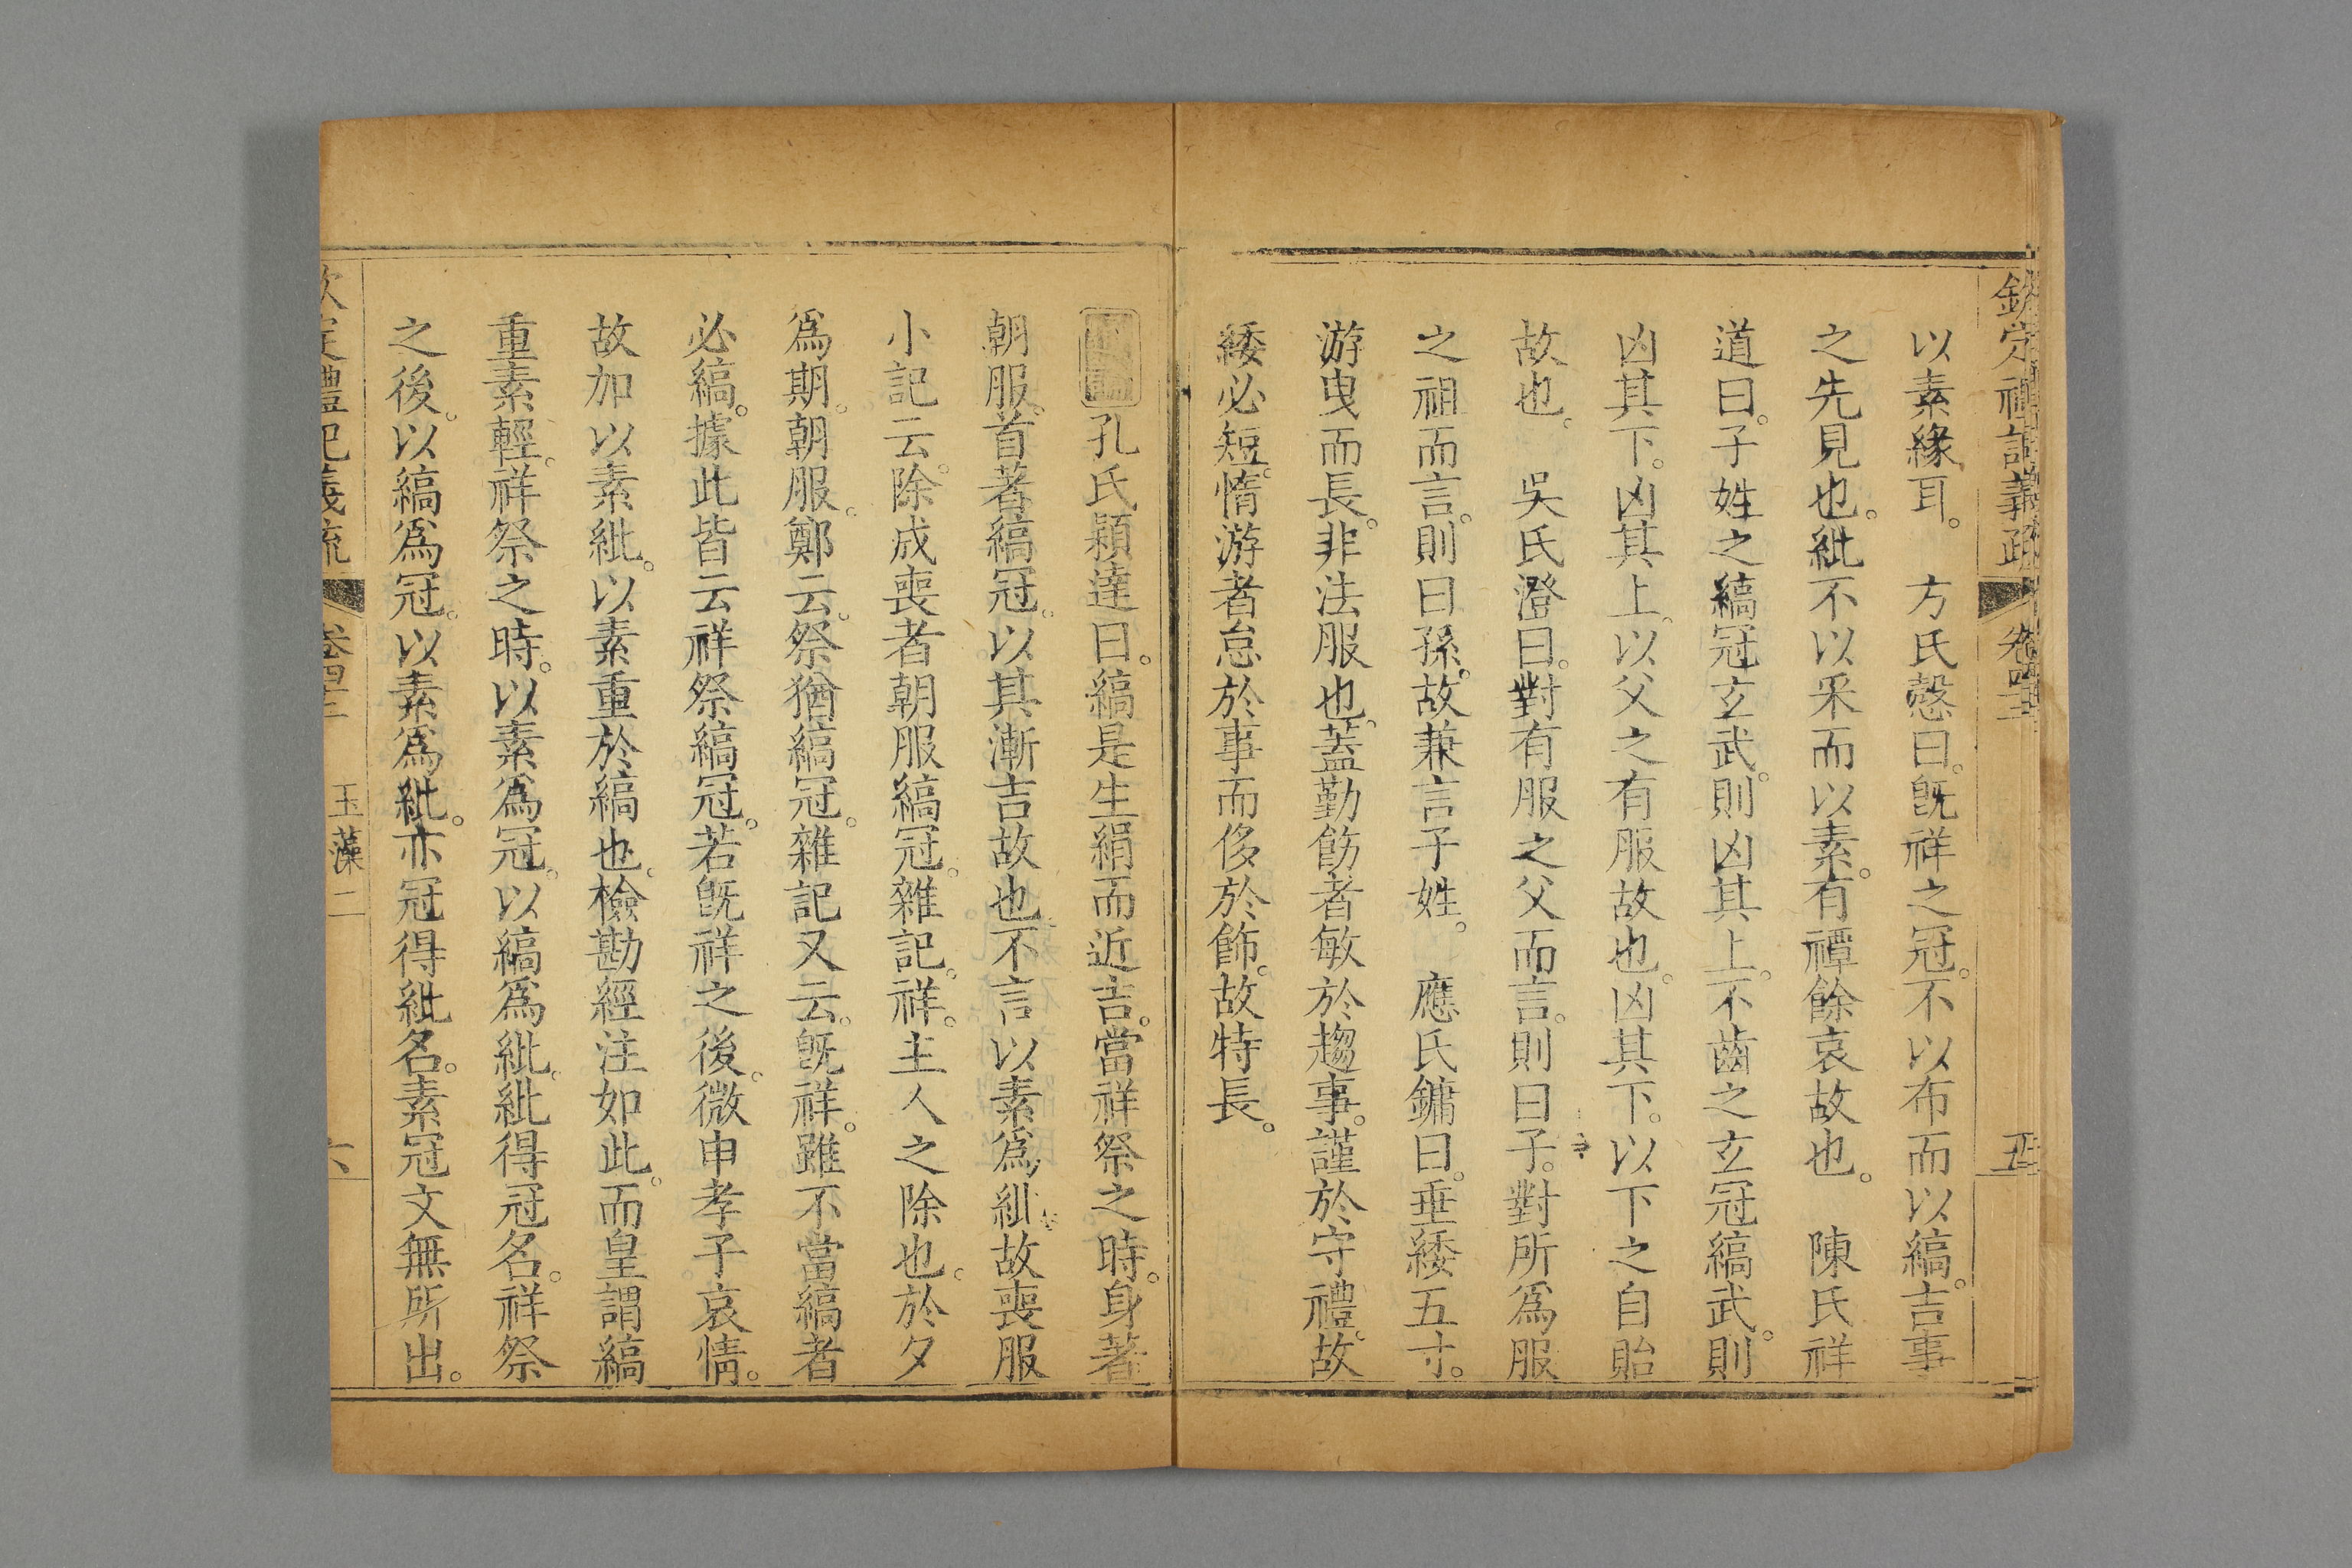 欽定禮記義疏 卷四十二 五
以素緣耳。 方氏慤曰。旣祥之冠。不以布而以縞。吉事
之先見也。紕不以采而以素。有禫餘哀故也。 陳氏祥
道曰。子姓之縞冠玄武。則凶其上。不齒之玄冠縞武。則
凶其下。凶其上。以父之有服故也。凶其下。以下之自貽
故也。 吳氏澄曰。對有服之父而言。則曰子。對所爲服
之祖而言。則曰孫。故兼言子姓。 應氏鏞曰。垂緌五寸。
游曳而長。非法服也。蓋勤飭者敏於趨事。謹於守禮。故
緌必短。惰游者怠於事而侈於飾。故特長。
孔氏穎達曰。縞是生絹而近吉。當祥祭之時。身著
朝服。首著縞冠。以其漸吉故也。不言以素爲紕。故喪服
小記云。除成喪者朝服縞冠。雜記。祥。主人之除也。於夕
爲期。朝服。鄭云。祭猶縞冠。雜記又云。旣祥。雖不當縞者
必縞。據此皆云祥祭縞冠。若旣祥之後。微申孝子哀情。
故加以素紕。以素重於縞也。檢勘經注如此。而皇謂縞
重素輕。祥祭之時。以素爲冠。以縞爲紕。紕得冠名。祥祭
之後。以縞爲冠。以素爲紕。亦冠得紕名。素冠文無所出。
欽定禮記義疏 卷四十二 玉藻二 六